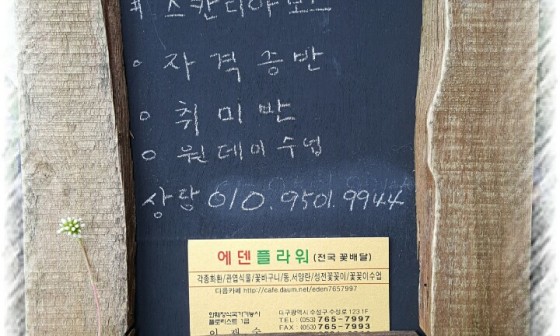 # 스칸디아모스
o 자격증반
o 취미반
o 원데이수업
상담 010.9501.9944
에덴플라워 (전국 꽃배달)
각종화환/관엽식물/꽃바구니/동,서양란/성전꽃꽂이/꽃꽂이수업
다음카페 http://cafe.daum.net/eden7657997
화훼장식국가기능사
플로리스트 1급
대구광역시 수성구 수성동 123 1F
TEL (053) 765-7997
FAX (053) 765-7993